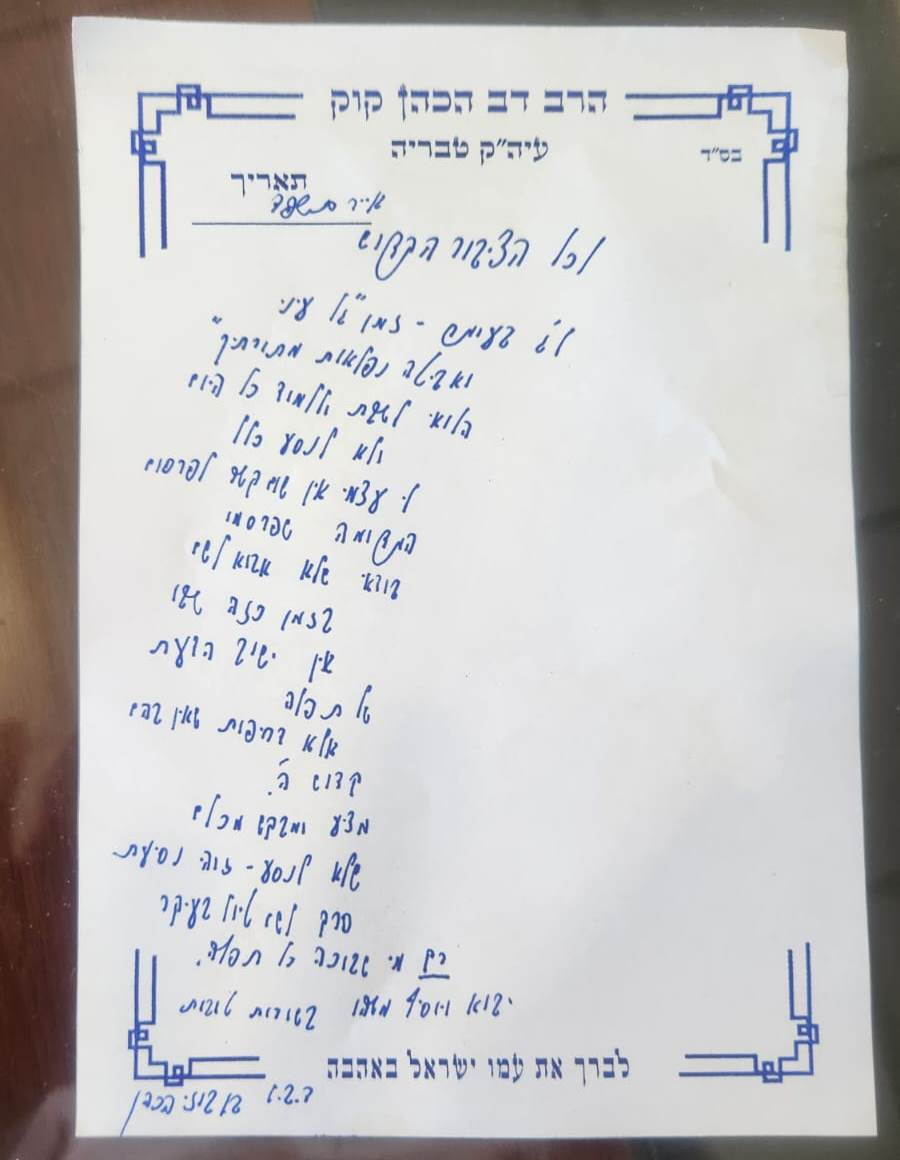 הרב דב הכהן קוק
עיה״ק טבריה
בס״ד
תאריך
אייר תשפד
לכל הציבור הקדוש
לג בעומר - זמן "גל עיני
ואביטה נפלאות מתורתך"
הלואי לשבת וללמוד כל היום
ולא לנסע כלל
לי עצמי אין שום קשר לפרסום
שפרסמו
בודאי שלא אבוא לשם
בזמן כזה שאין
אין ישוב הדעת
של תפלה
אלא דחיפות שאין בהם
קדוש ה'.
מציע ומבקש מכולם
שלא לנסע - זוהי נסיעת
סרק לשם טיול בעיקר
רק מי שבוכה כל תפלה.
יבוא ויוסיף משהו בשורות טובות
לברך את עמו ישראל באהבה
הכהן